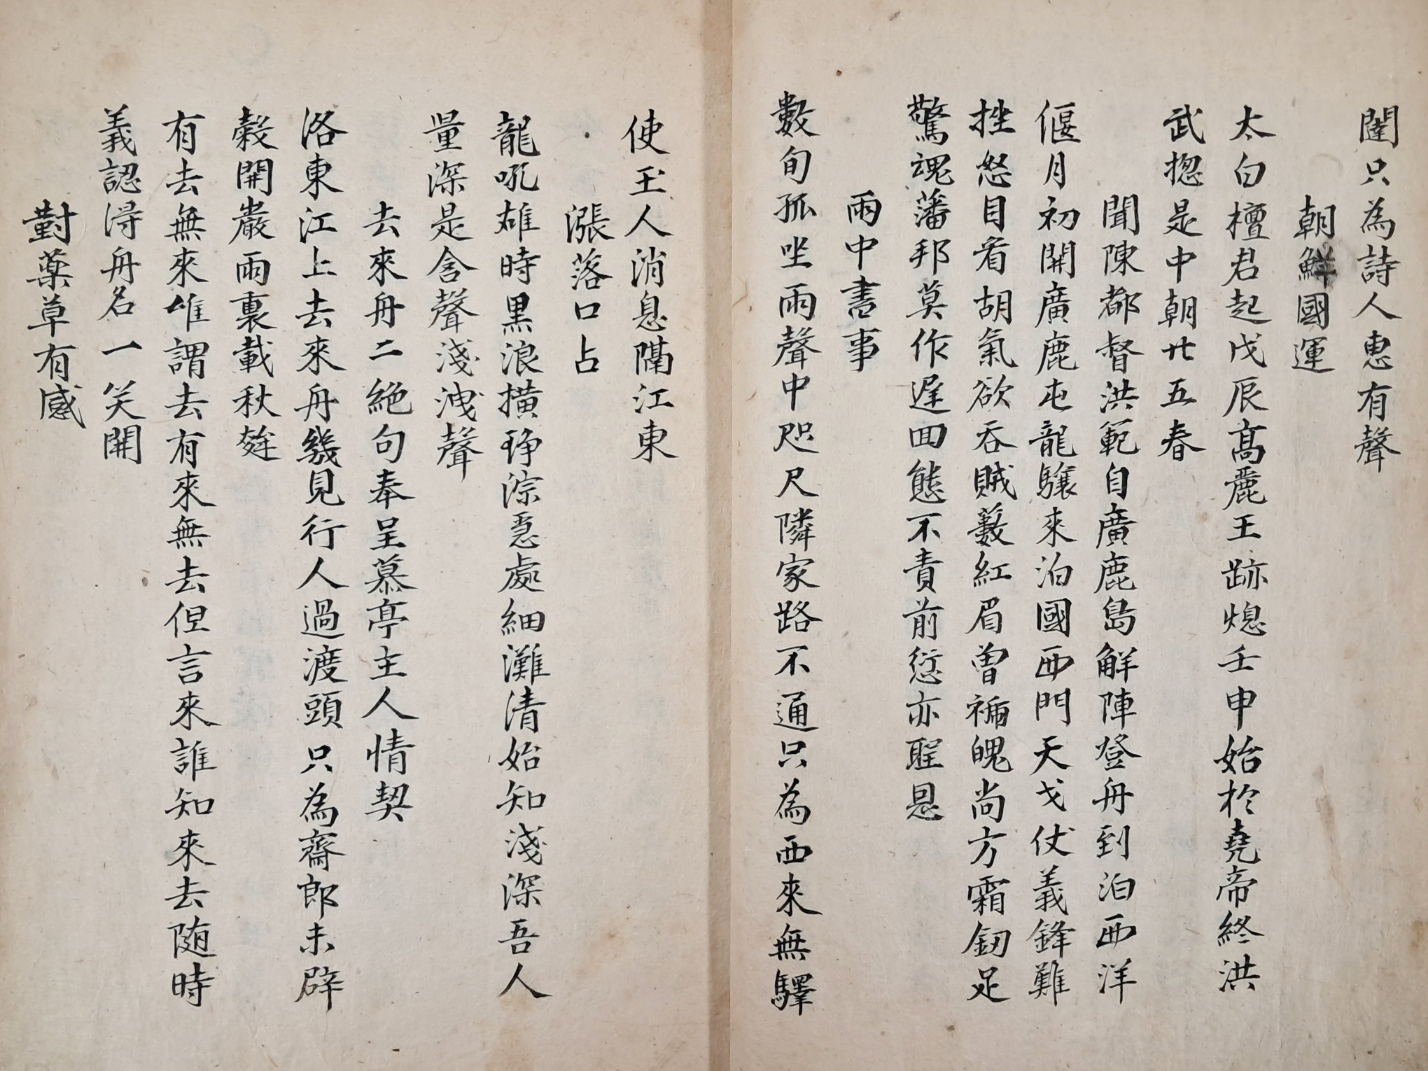 闥只為詩人惠有聲
朝鮮國運
太白檀君起戊辰高麗王跡熄壬申始於堯帝終洪
武揔是中朝廿五春
聞陳都督洪範自廣鹿島觧陣登舟到泊西洋
偃月初開廣鹿屯龍驤來泊國西門天戈仗義鋒難
挫怒目看胡氣欲吞賊藪紅眉曾褫魄尚方霜釼足
驚魂藩邦莫作遅回態不責前愆亦聖恩
雨中書事
數旬孤坐雨聲中咫尺隣家路不通只為西來無驛
使玉人消息隔江東
漲落口占
龍吼雄時黒浪横琤淙惡處細灘清始知淺深吾人
量深是含聲淺洩聲
去來舟二絶句奉呈慕亭主人情契
洛東江上去來舟幾見行人過渡頭只為齋郎未辟
穀開巖雨裏載秋
有去無來雖謂去有來無去但言來誰知來去随時
義認得舟名一笑開
對藥草有感